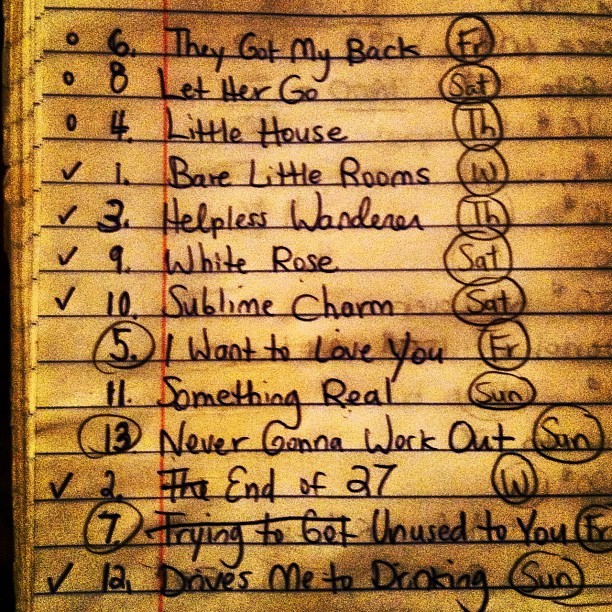 o 6. They Got My Back Fr
o 8 Let Her Go Sat
o 4. Little House Th
✓ 1. Bare Little Rooms W
✓ 3. Helpless Wanderer Th
✓ 9. White Rose Sat
✓ 10. Sublime Charm Sat
5. I Want to Love You Fr
11. Something Real Sun
13 Never Gonna Work Out Sun
✓ 2. The End of 27 W
7. Trying to Get Unused to You Fr
✓ 12. Drives Me to Drinking Sun